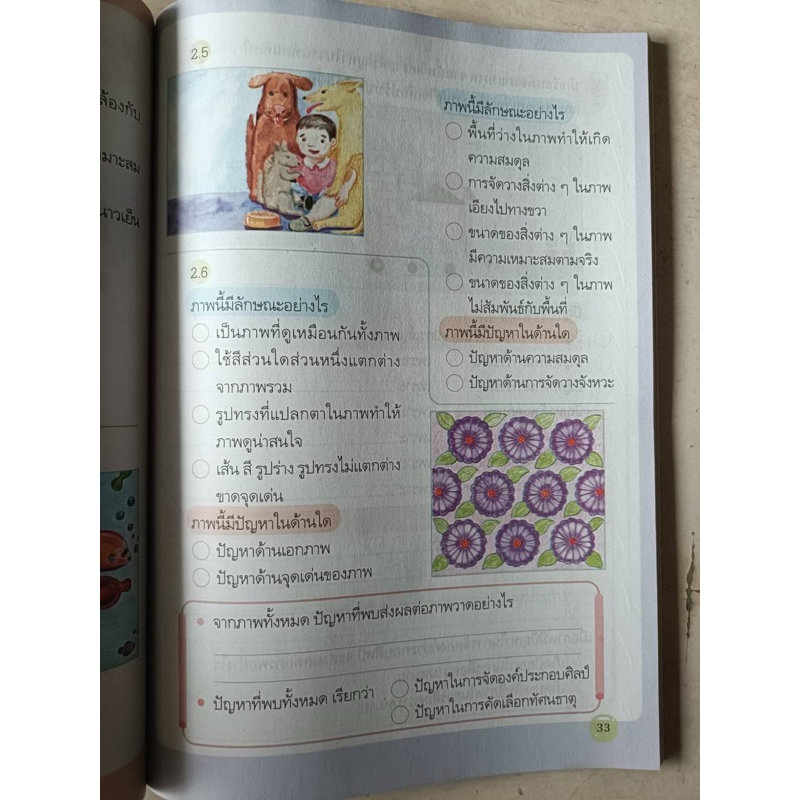 2.5
ภาพนี้มีลักษณะอย่างไร
พื้นที่ว่างในภาพทำให้เกิด
ความสมดุล
การจัดวางสิ่งต่าง ๆ ในภาพ
เอียงไปทางขวา
ขนาดของสิ่งต่าง ๆ ในภาพ
มีความเหมาะสมตามจริง
ขนาดของสิ่งต่าง ๆ ในภาพ
ไม่สัมพันธ์กับพื้นที่
ภาพนี้มีปัญหาในด้านใด
ปัญหาด้านความสมดุล
ปัญหาด้านการจัดวางจังหวะ
2.6
ภาพนี้มีลักษณะอย่างไร
เป็นภาพที่ดูเหมือนกันทั้งภาพ
ใช้สีส่วนใดส่วนหนึ่งแตกต่าง
จากภาพรวม
รูปทรงที่แปลกตาในภาพทำให้
ภาพดูน่าสนใจ
เส้น สี รูปร่าง รูปทรงไม่แตกต่าง
ขาดจุดเด่น
ภาพนี้มีปัญหาในด้านใด
ปัญหาด้านเอกภาพ
ปัญหาด้านจุดเด่นของภาพ
• จากภาพทั้งหมด ปัญหาที่พบส่งผลต่อภาพวาดอย่างไร
• ปัญหาที่พบทั้งหมด เรียกว่า
ปัญหาในการจัดองค์ประกอบศิลป์
ปัญหาในการคัดเลือกทัศนธาตุ
33
ล้องกับ
มาะสม
นาวเย็น